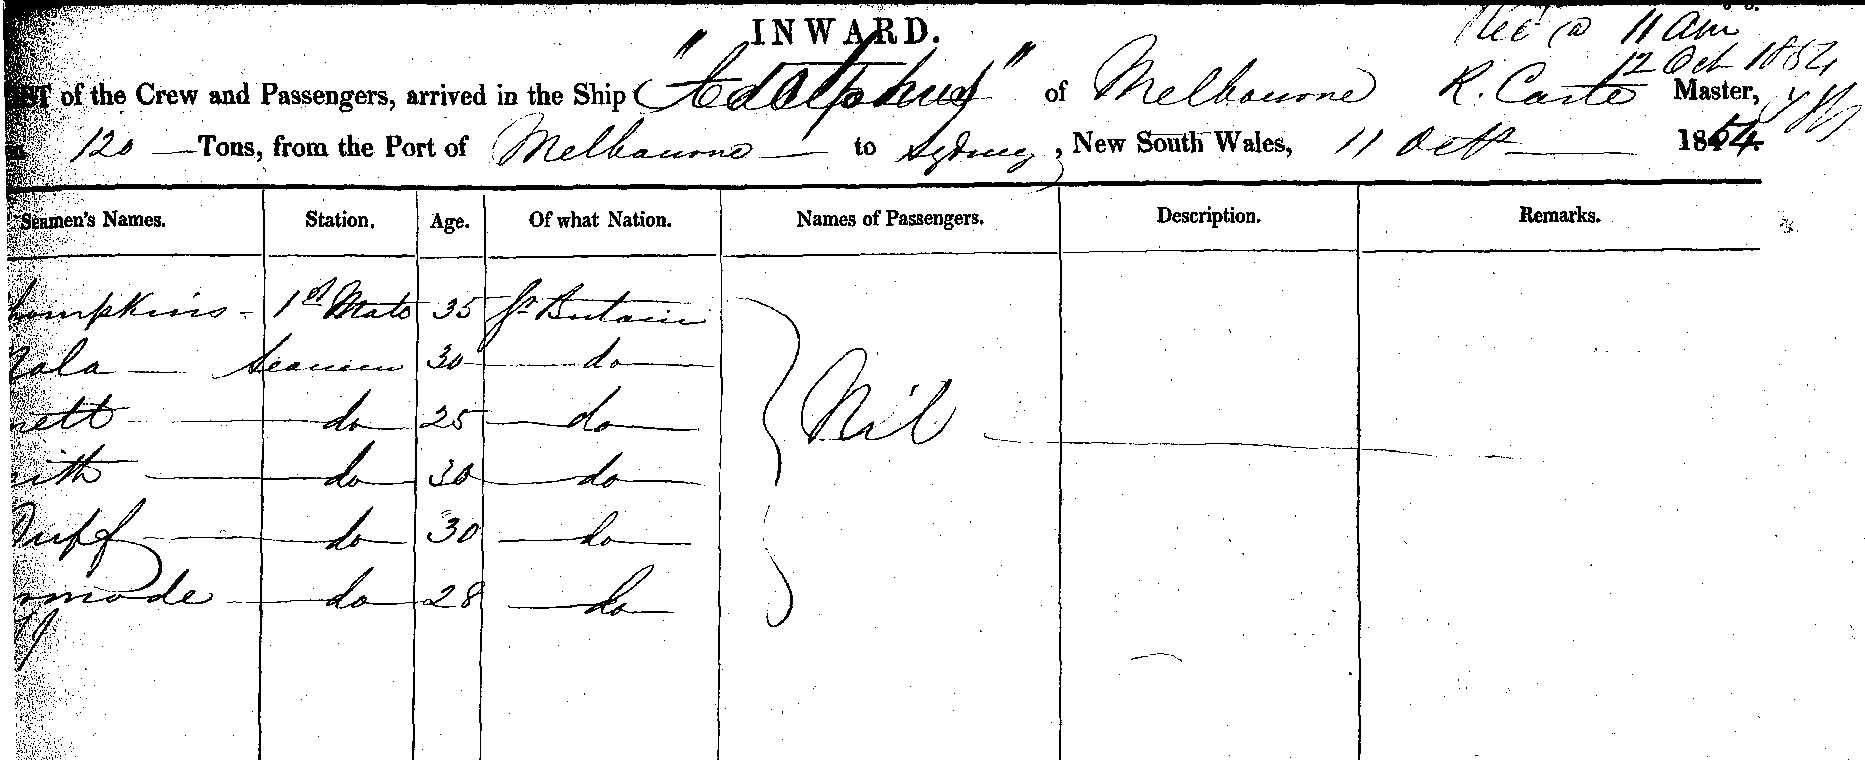 INWARD.
Rec @ 11 am
12 Oct 1854
of the Crew and Passengers, arrived in the Ship "Adolphus" of Melbourne R. Carte Master,
120 Tons, from the Port of Melbourne to Sydney, New South Wales, 11 Oct 1854.
Seamen's Names. Station. Age. Of what Nation. Names of Passengers. Description. Remarks.
hompkins - 1st Mate 35 Gt Britain
Seaman 30 do
nett do 25 do
ith do 30 do
do 30 do
mode do 28 do
Nil